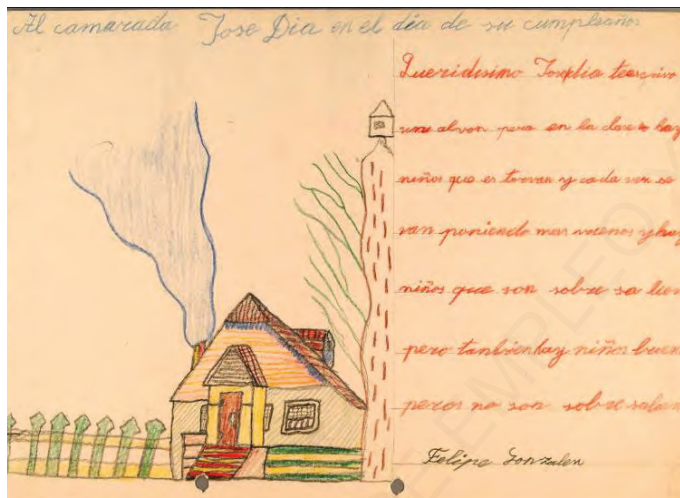 Al camarada Jose Dia en el dia de su cumpleaños
Queridisimo Josedia te escrivo
un alvon pero en la clase hay
niños que es torvan y cada vez se
van poniendo mas vuenos y hay
niños que son sobre sa lien
pero tanbien hay niños buen
peros no son sobre salien
Felipe Gonzalez
EMPLEO Y